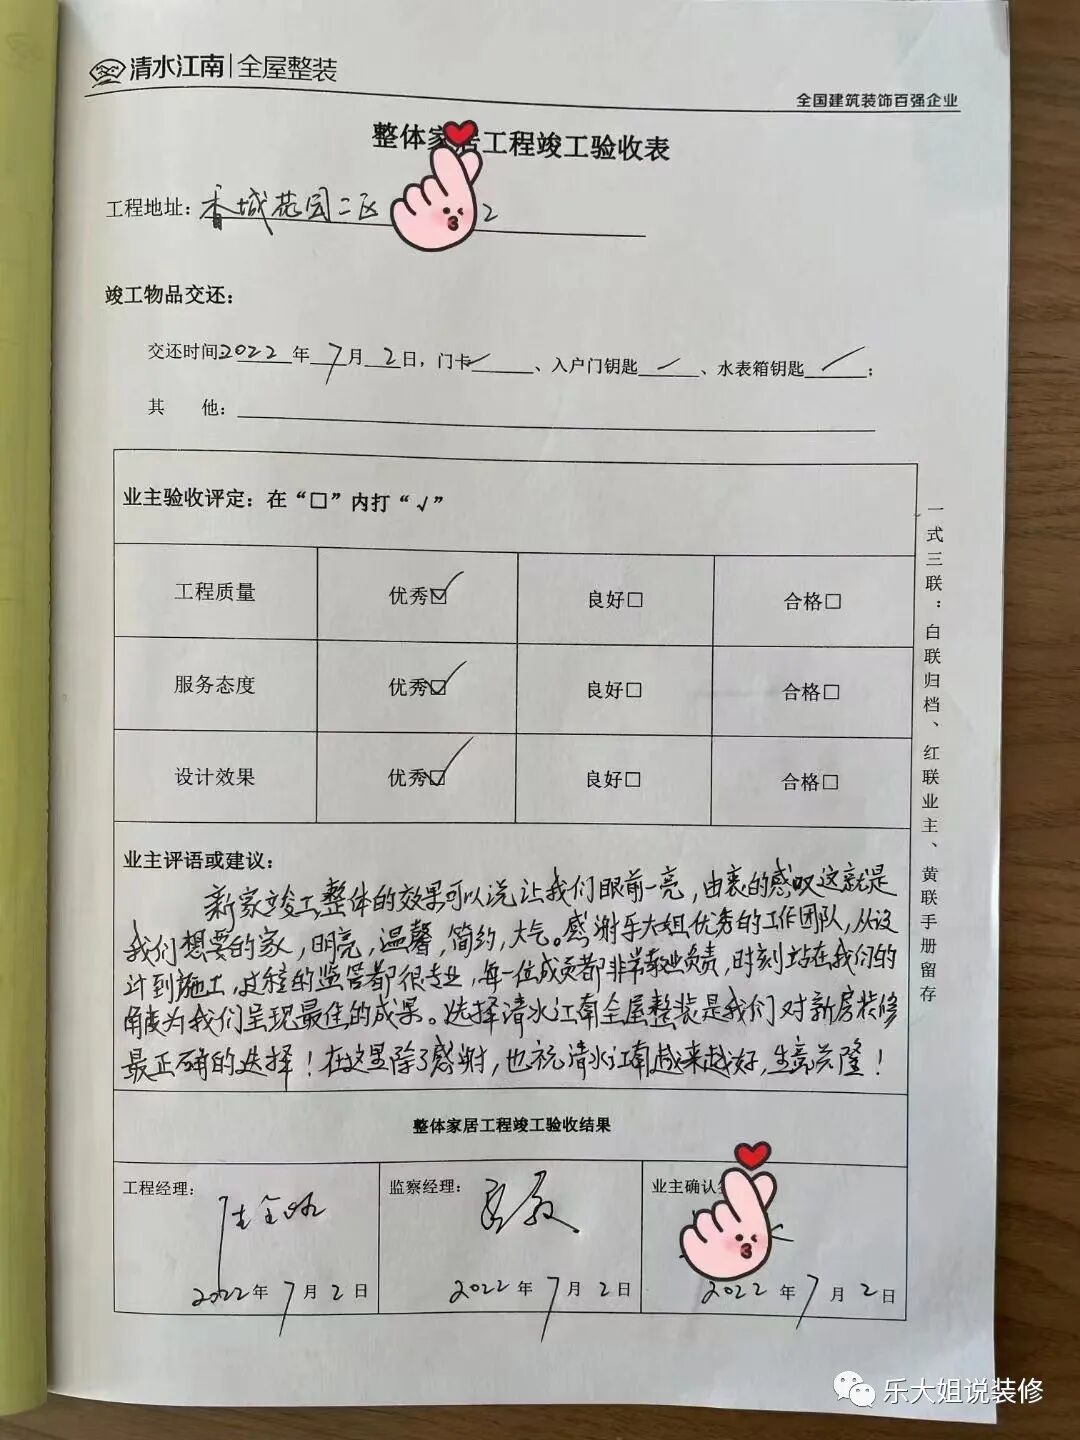 清水江南|全屋整装
全国建筑装饰百强企业
整体家居工程竣工验收表
工程地址：香城花园二区 2
竣工物品交还：
交还时间2022年7月2日，门卡✓、入户门钥匙✓、水表箱钥匙✓；
其 他：
业主验收评定：在“□”内打“√”
工程质量 优秀☑ 良好□ 合格□
服务态度 优秀☑ 良好□ 合格□
设计效果 优秀☑ 良好□ 合格□
业主评语或建议：
新家竣工，整体的效果可以说让我们眼前一亮，由衷的感叹这就是
我们想要的家，明亮，温馨，简约，大气。感谢乐大姐优秀的工作团队，从设
计到施工，过程的监管都很专业，每一位成员都非常敬业负责，时刻站在我们的
角度为我们呈现最佳的成果。选择清水江南全屋整装是我们对新房装修
最正确的选择！在这里除了感谢，也祝清水江南越来越好，生意兴隆！
整体家居工程竣工验收结果
工程经理： 监察经理： 业主确认
2022年7月2日 2022年7月2日 2022年7月2日
一式三联：白联归档、红联业主、黄联手册留存
乐大姐说装修